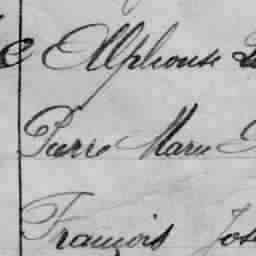 Alphonse
Pierre Marie
François